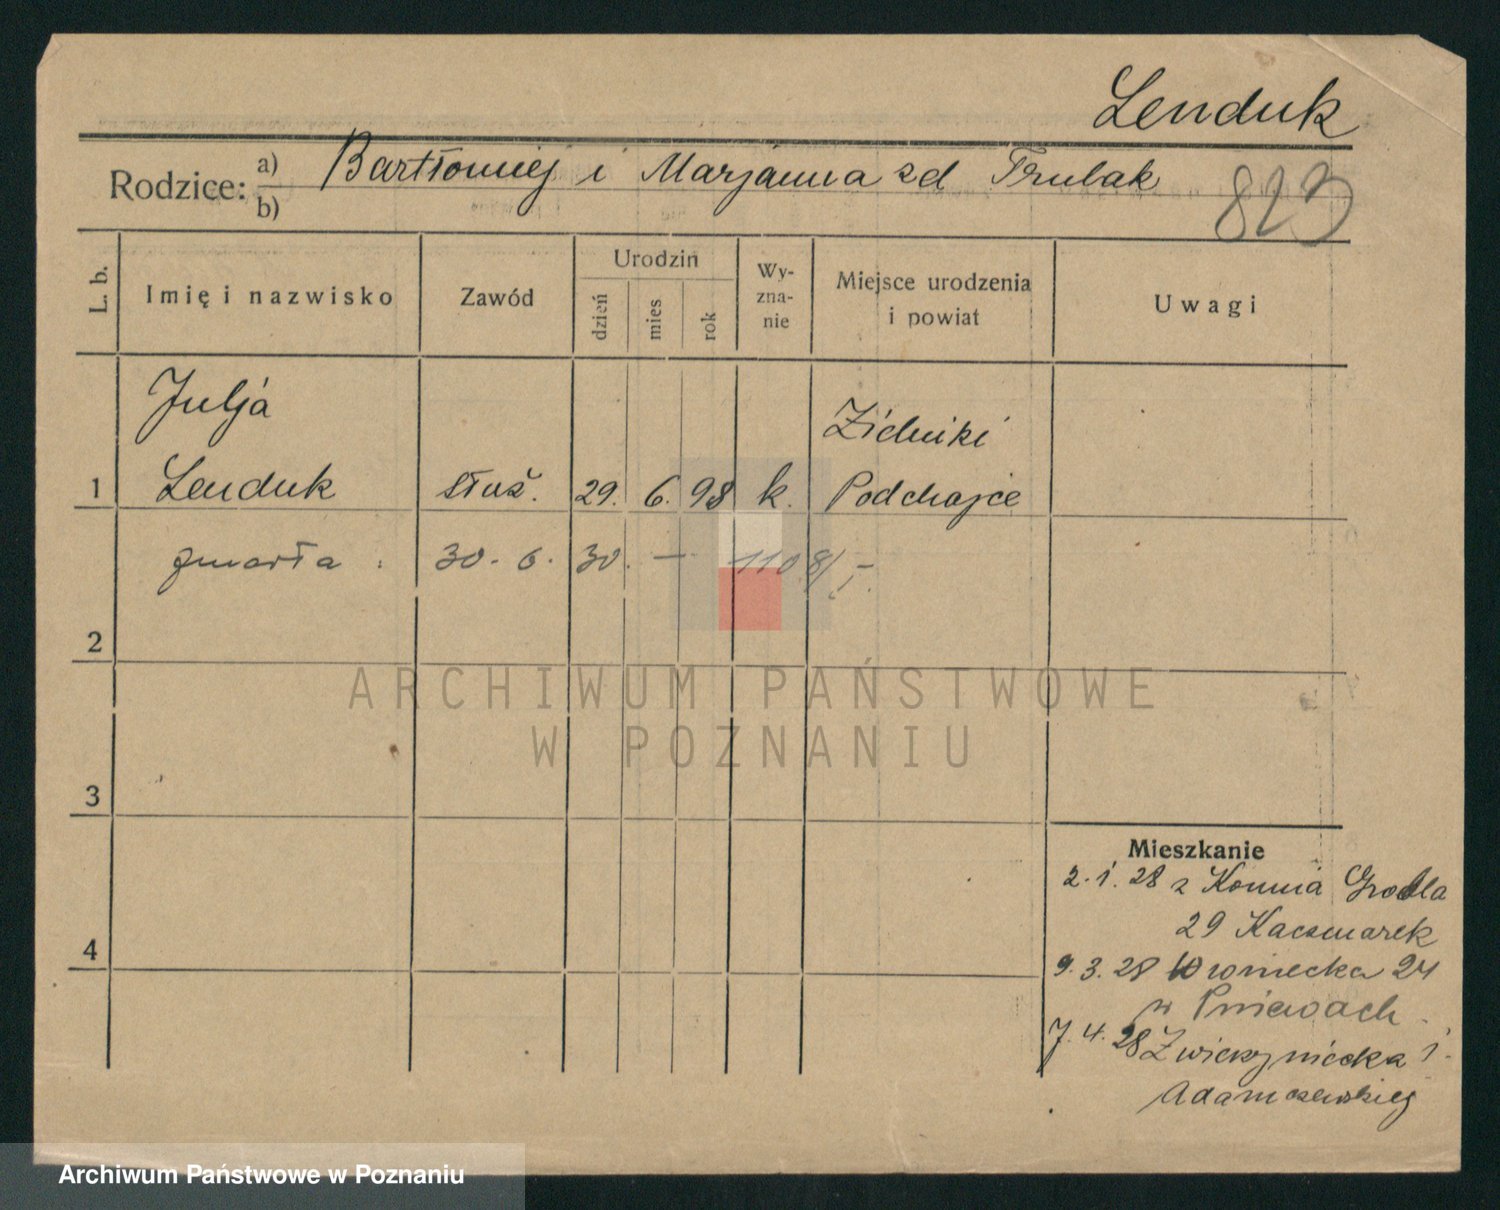 Lenduk
Rodzice: a) Bartłomiej i Marjanna zd Trubak
b)
823
L. b.
Imię i nazwisko
Zawód
Urodzin
dzień
mies
rok
Wy-
zna-
nie
Miejsce urodzenia
i powiat
Uwagi
Julja
Zielniki
1 Lenduk służ. 29. 6. 98 k. Podchajce
zmarła : 30. 6. 30. — 1108/
2
ARCHIWUM PAŃSTWOWE
W POZNANIU
3
Mieszkanie
2. 1. 28 z Konina Grobla
29 Kaczmarek
4
9. 3. 28 Wroniecka 24
w Pniewach
7. 4. 28 Zwierzyniecka 1.
Adamczewskiej
Archiwum Państwowe w Poznaniu